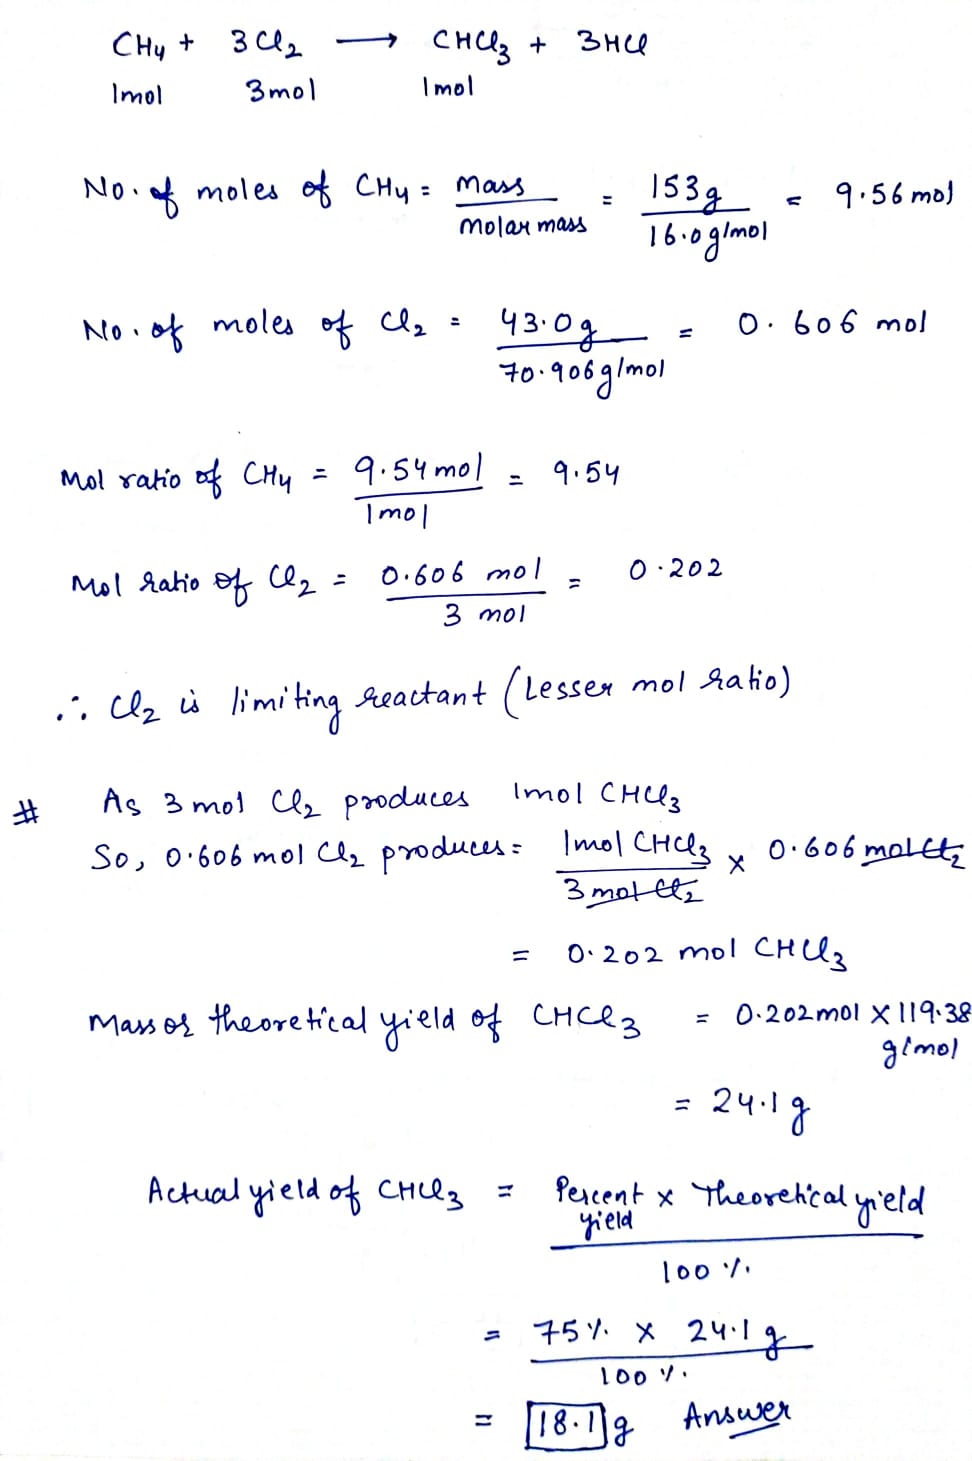 CH4 + 3Cl2 ⟶ CHCl3 + 3HCl
1mol 3mol 1mol
No. of moles of CH4 = Mass / Molar mass = 153g / 16.0g/mol = 9.56 mol
No. of moles of Cl2 = 43.0g / 70.906g/mol = 0.606 mol
Mol ratio of CH4 = 9.54mol / 1mol = 9.54
Mol ratio of Cl2 = 0.606 mol / 3 mol = 0.202
∴ Cl2 is limiting reactant (Lesser mol ratio)
# As 3 mol Cl2 produces 1mol CHCl3
So, 0.606 mol Cl2 produces = 1mol CHCl3 / 3 mol Cl2 × 0.606 mol Cl2
= 0.202 mol CHCl3
Mass or theoretical yield of CHCl3 = 0.202mol × 119.38
g/mol
= 24.1g
Actual yield of CHCl3 = Percent yield × Theoretical yield / 100 %
= 75% × 24.1g / 100 %
= 18.1 g Answer